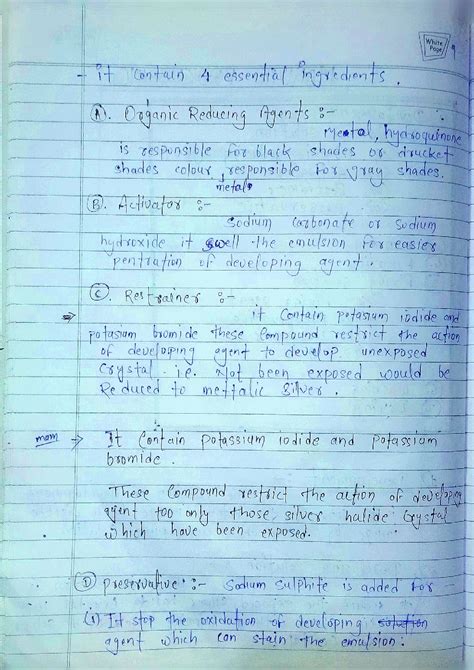 White Page
9
- it contain 4 essential ingredients.
(A). Organic Reducing Agents :-
Metal, hydroquinone
is responsible for black shades or
shades colour, responsible for gray shades.
metal
(B). Activator :-
Sodium Carbonate or Sodium
hydroxide it swell the emulsion for easier
pentration of developing agent.
(C). Restrainer :-
it contain potasium iodide and
potasium bromide these Compound restrict the action
of developing agent to develop unexposed
Crystal i.e. Not been exposed would be
Reduced to mettalic Silver.
mom → It Contain potassium iodide and potassium
bromide.
These Compound restrict the action of developing
agent too only those silver halide Crystal
which have been exposed.
(D) preservative :- Sodium Sulphite is added for
(i) It stop the oxidation of developing solution
agent which can stain the emulsion.